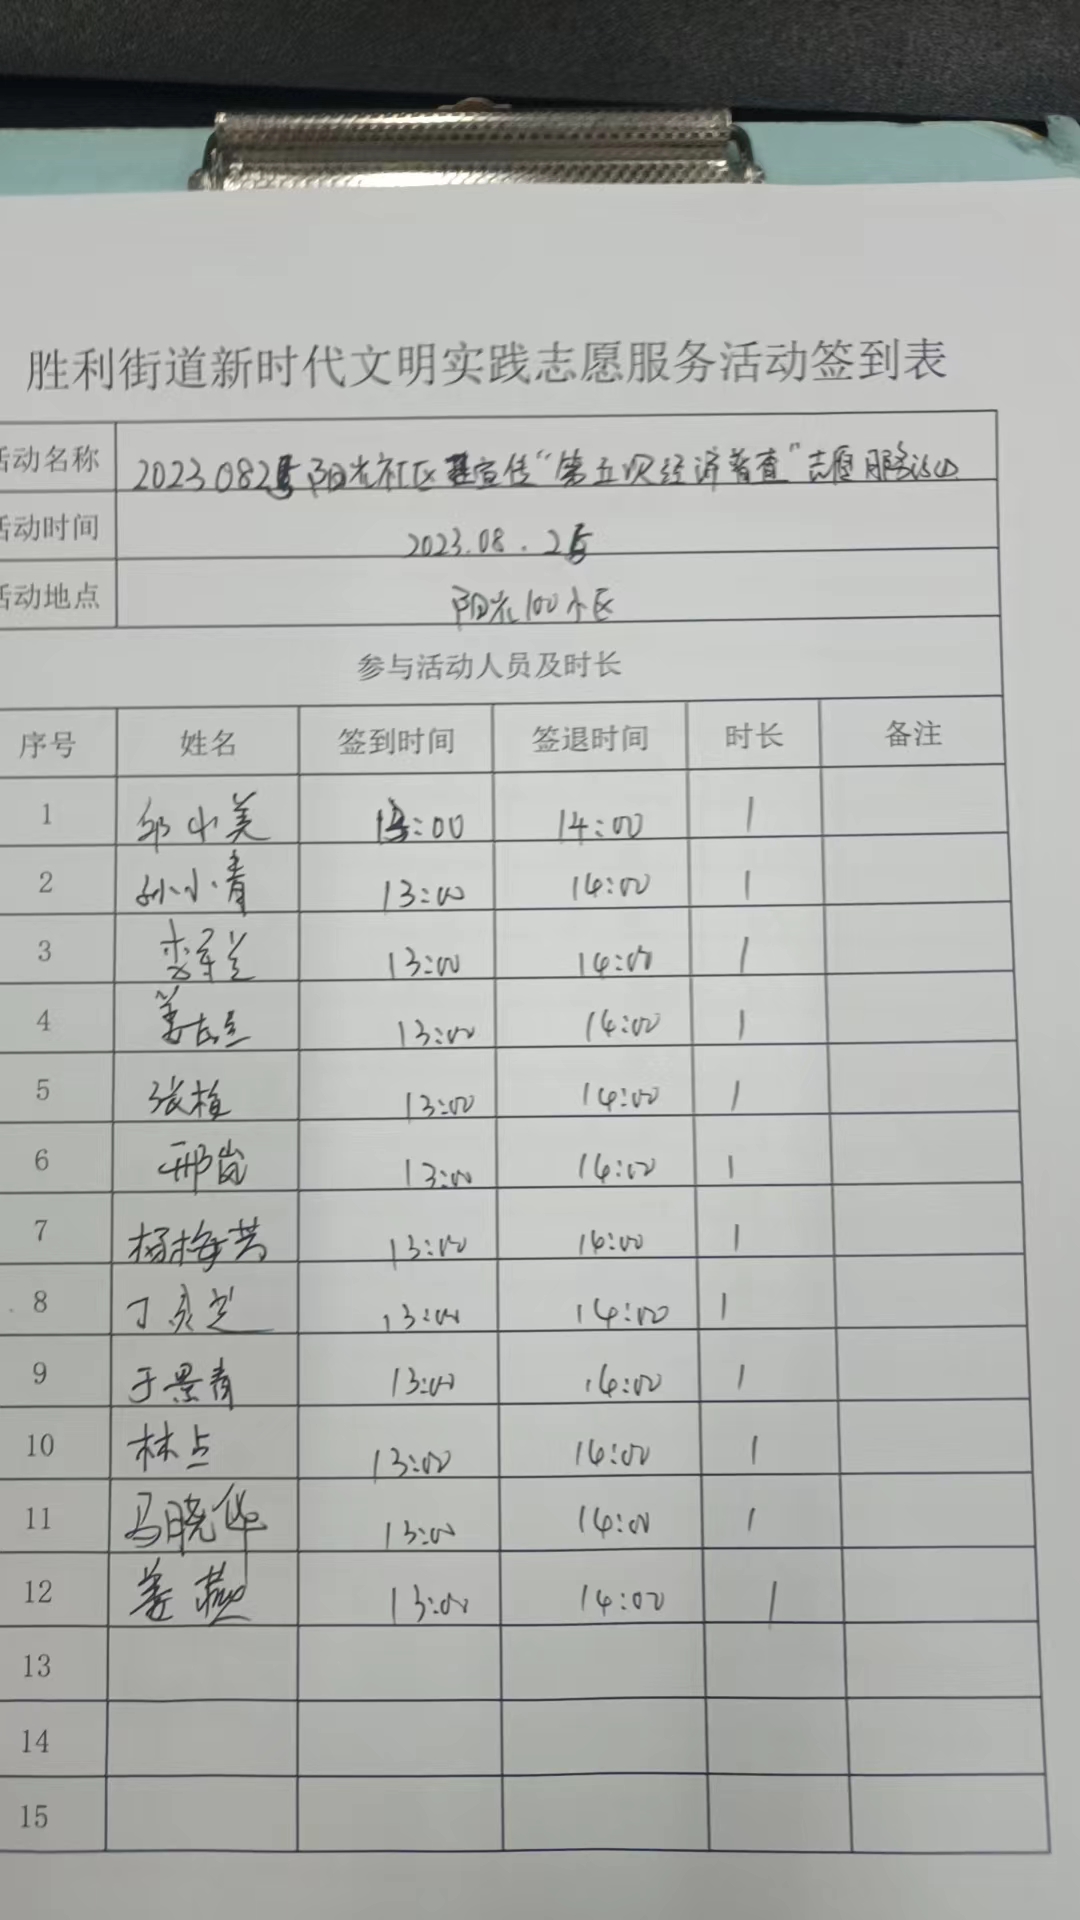 胜利街道新时代文明实践志愿服务活动签到表
活动名称 2023082 阳光社区 宣传“第五次经济普查”志愿服务活动
活动时间 2023.08.25
活动地点 阳光100小区
参与活动人员及时长
序号 姓名 签到时间 签退时间 时长 备注
1 邱小美 13:00 14:00 1
2 孙小青 13:00 14:00 1
3 13:00 14:00 1
4 姜 13:00 14:00 1
5 张梅 13:00 14:00 1
6 邢岚 13:00 14:00 1
7 杨梅芸 13:00 14:00 1
8 丁 芝 13:00 14:00 1
9 于景青 13:00 14:00 1
10 林点 13:00 14:00 1
11 马晓华 13:00 14:00 1
12 姜燕 13:00 14:00 1
13
14
15